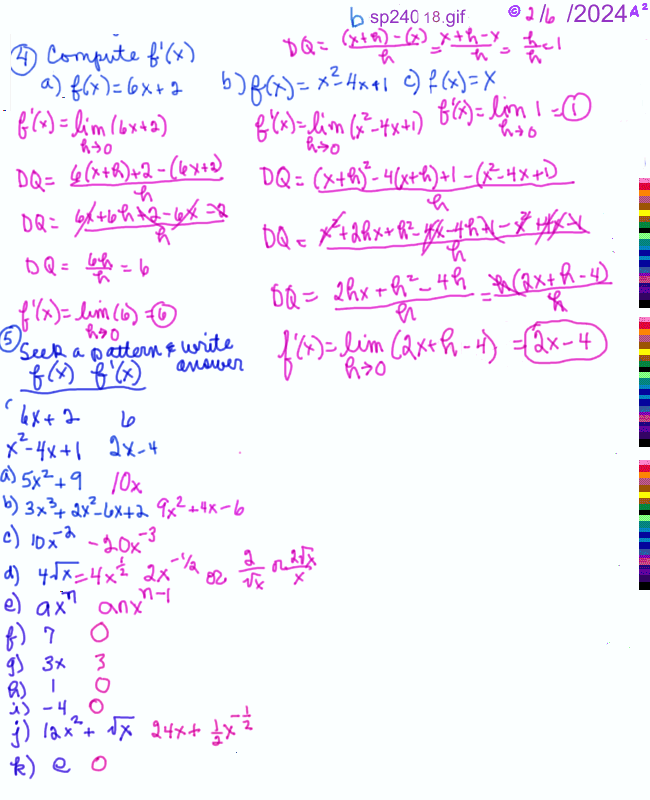 b sp240 18.gif © 2/6 /2024 A²
④ Compute f'(x)
DQ = ((x+h)-(x))/h = (x+h-x)/h = h/h = 1
a) f(x) = 6x+2 b) f(x) = x²-4x+1 c) f(x) = x
f'(x) = lim h→0 (6x+2)
DQ = (6(x+h)+2-(6x+2))/h
DQ = (6x+6h+2-6x-2)/h
DQ = 6h/h = 6
f'(x) = lim h→0 (6) = 6
f'(x) = lim h→0 (x²-4x+1)
DQ = ((x+h)²-4(x+h)+1-(x²-4x+1))/h
DQ = (x²+2hx+h²-4x-4h+1-x²+4x-1)/h
DQ = (2hx+h²-4h)/h = h(2x+h-4)/h
f'(x) = lim h→0 (2x+h-4) = 2x-4
f'(x) = lim h→0 1 = 1
⑤ Seek a pattern & write answer
f(x) f'(x)
6x+2 6
x²-4x+1 2x-4
a) 5x²+9 10x
b) 3x³+2x²-6x+2 9x²+4x-6
c) 10x⁻² -20x⁻³
d) 4√x = 4x^(1/2) 2x^(-1/2) or 2/√x or 2√x/x
e) axⁿ anx^(n-1)
f) 7 0
g) 3x 3
h) 1 0
i) -4 0
j) 12x²+√x 24x+½x^(-1/2)
k) e 0